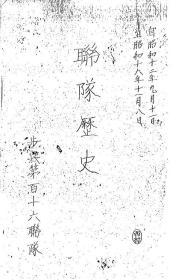 自昭和十二年九月十日
至昭和十八年十一月八日
聯隊歴史
歩兵第百十六聯隊